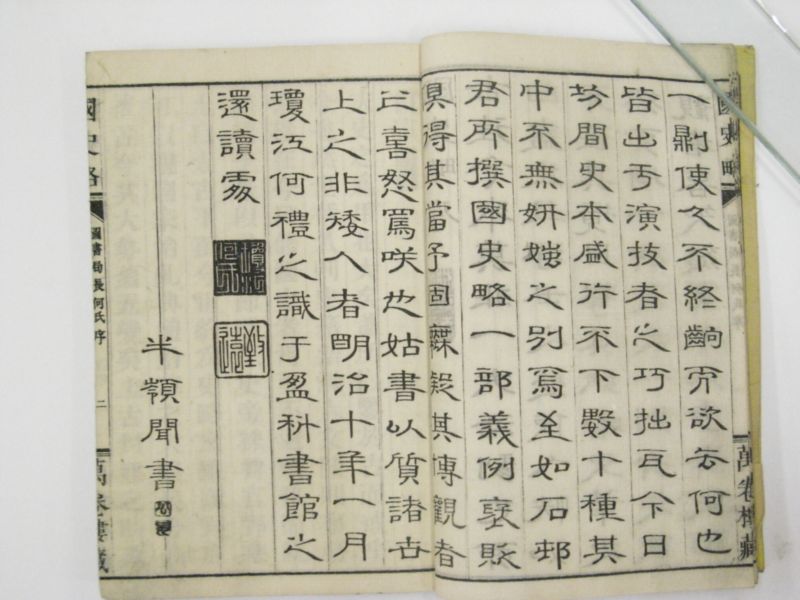 一劇使久不終齣欲去何也
皆出于演技者之巧拙耳今日
坊間史本盛行不下數十種其
中不無妍媸之別焉至如石邨
君所撰國史略一部義例褒貶
具得其當予固無疑其傳觀者
之喜怒罵咲也姑書以質諸
上之非矮人者明治十年一月
瓊江何禮之識于盈科書館之
還讀處
半嶺聞書
國史略
圖書局長何氏序
二
萬卷樓藏